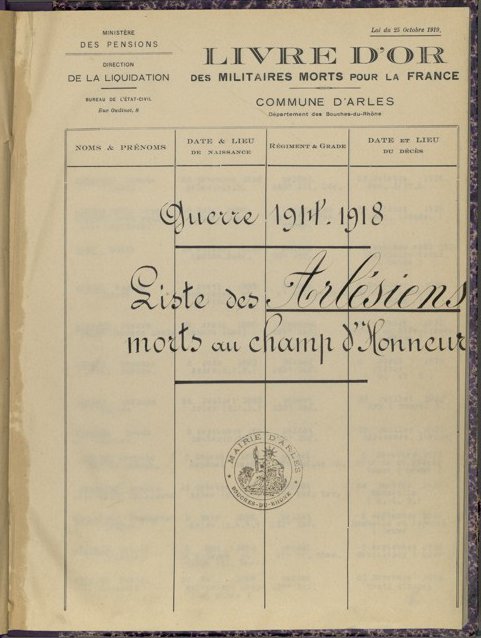 MINISTÈRE
DES PENSIONS
DIRECTION
DE LA LIQUIDATION
BUREAU DE L'ÉTAT-CIVIL
Rue Oudinot, 8
Loi du 25 Octobre 1919.
LIVRE D'OR
DES MILITAIRES MORTS POUR LA FRANCE
COMMUNE D'ARLES
Département des Bouches-du-Rhône
NOMS & PRÉNOMS
DATE & LIEU
DE NAISSANCE
RÉGIMENT & GRADE
DATE ET LIEU
DU DÉCÈS
Guerre 1914-1918
Liste des Arlésiens
morts au champ d'Honneur
MAIRIE D'ARLES
BOUCHES-DU-RHÔNE